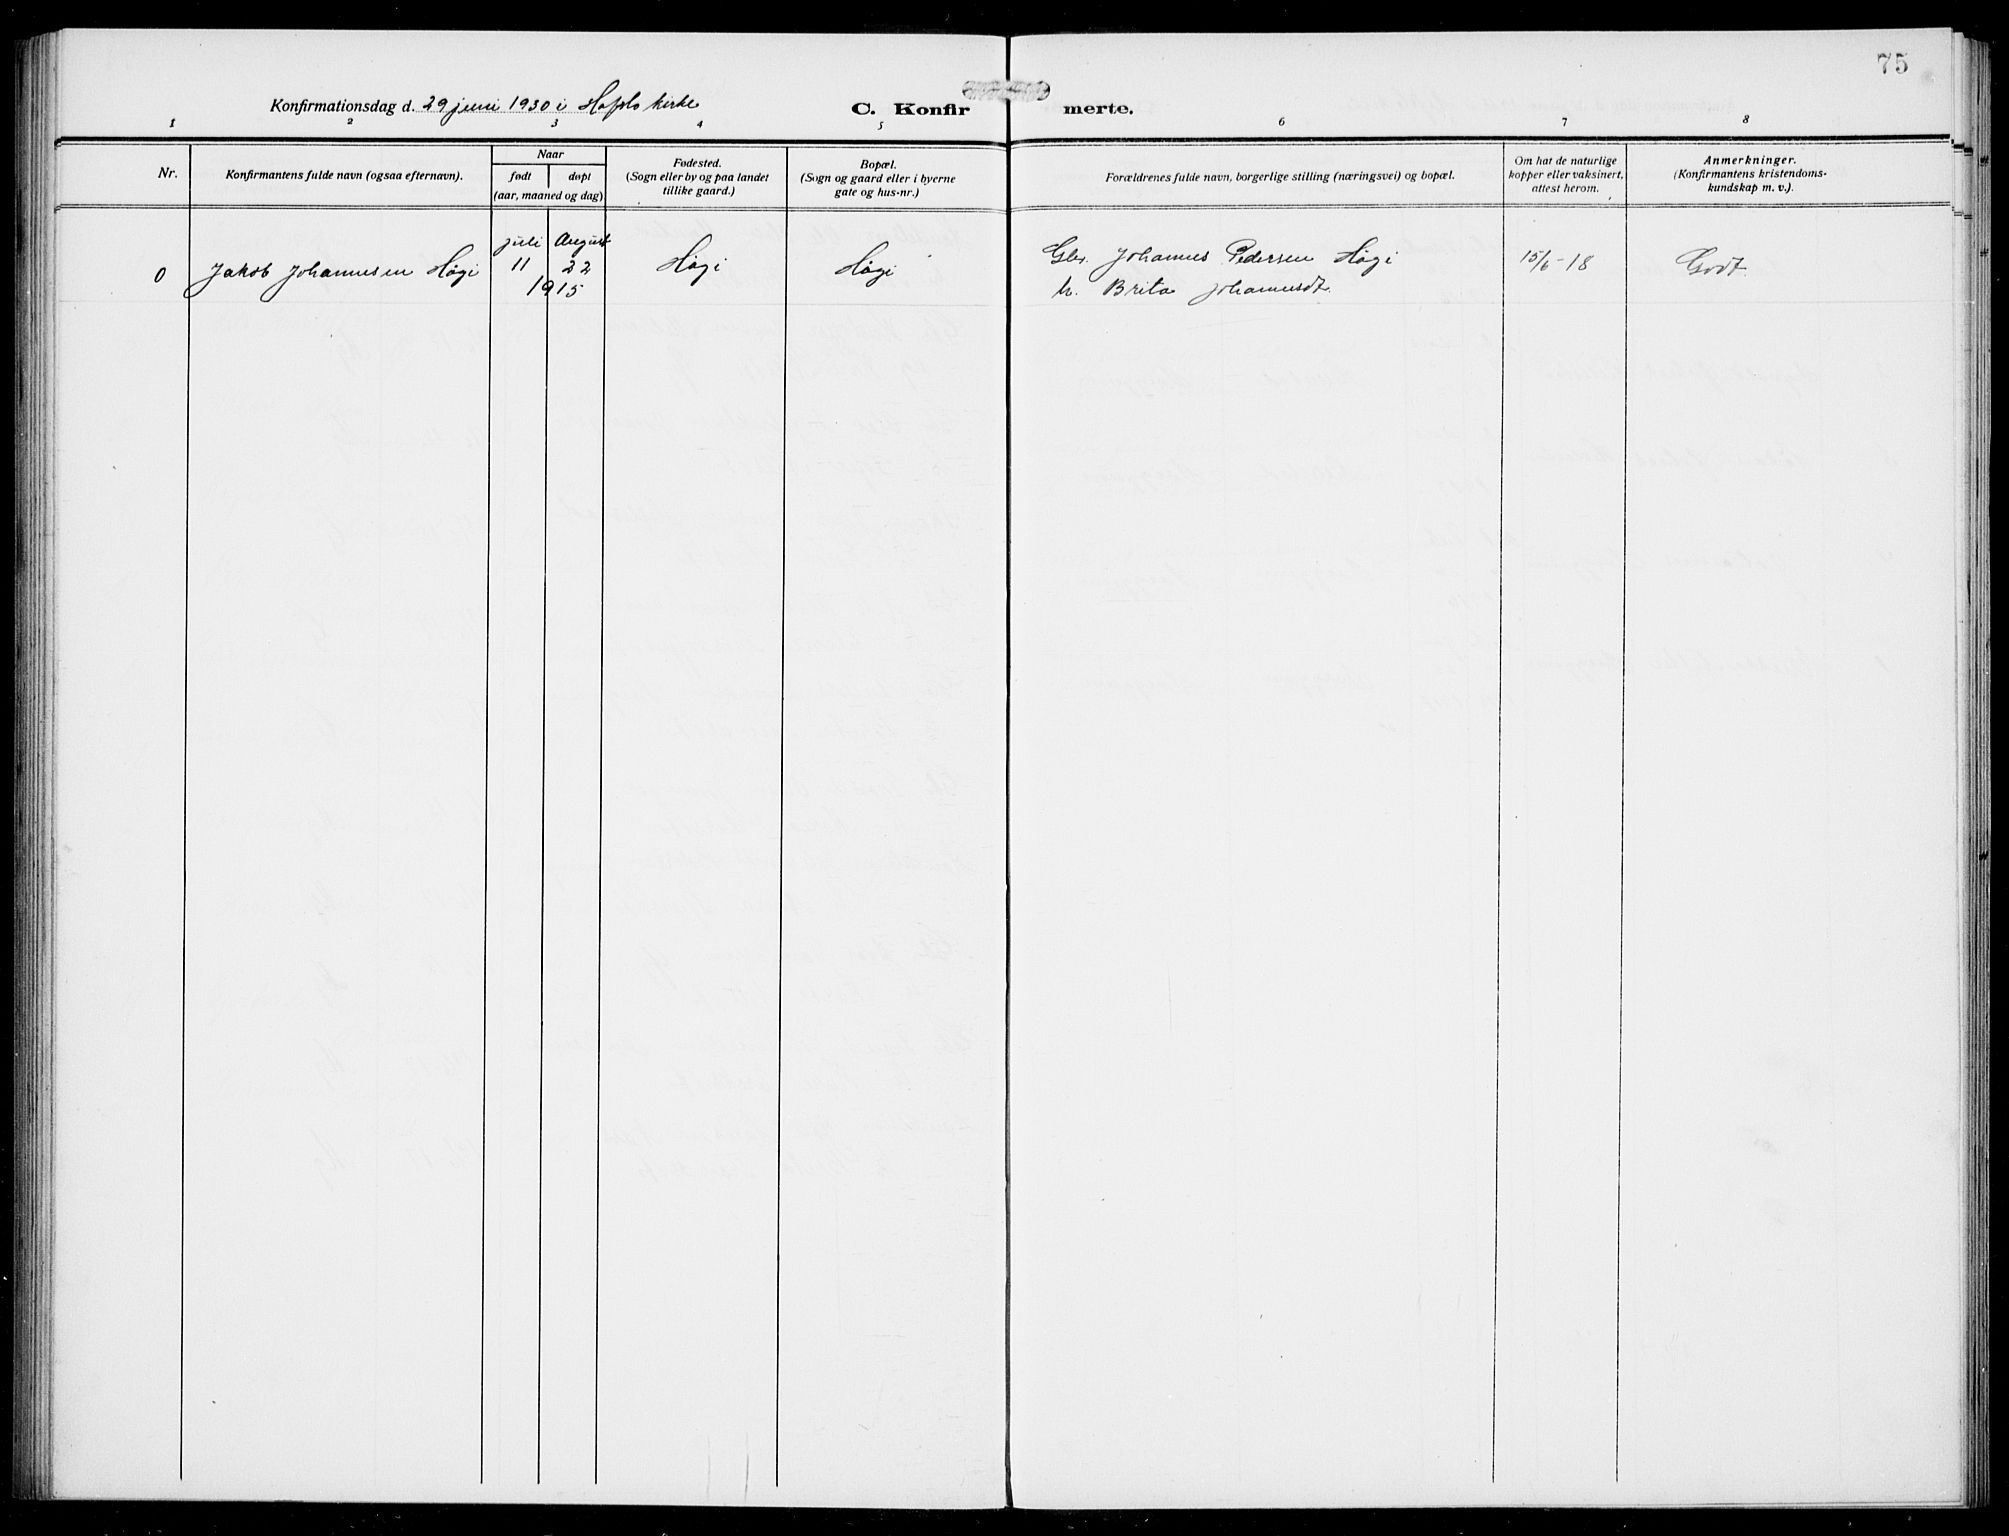 75
Konfirmationsdag d. 29 juni 1930 i Hafslo kirke
C. Konfir merte.
1 2 3 4 5 6 7 8
Nr.
Konfirmantens fulde navn (ogsaa efternavn).
Naar
født
døpt
(aar, maaned og dag)
Fødested.
(Sogn eller by og paa landet
tillike gaard.)
Bopæl.
(Sogn og gaard eller i byerne
gate og hus-nr.)
Forældrenes fulde navn, borgerlige stilling (næringsvei) og bopæl.
Om hat de naturlige
kopper eller vaksinert,
attest herom.
Anmerkninger.
(Konfirmantens kristendoms-
kundskap m. v.).
juli August
0 Jakob Johannesen Høgi 11 22 Høgi Høgi Gbr. Johannes Pedersen Høgi 15/6-18 Godt
1915 h. Brita Johannesdt.